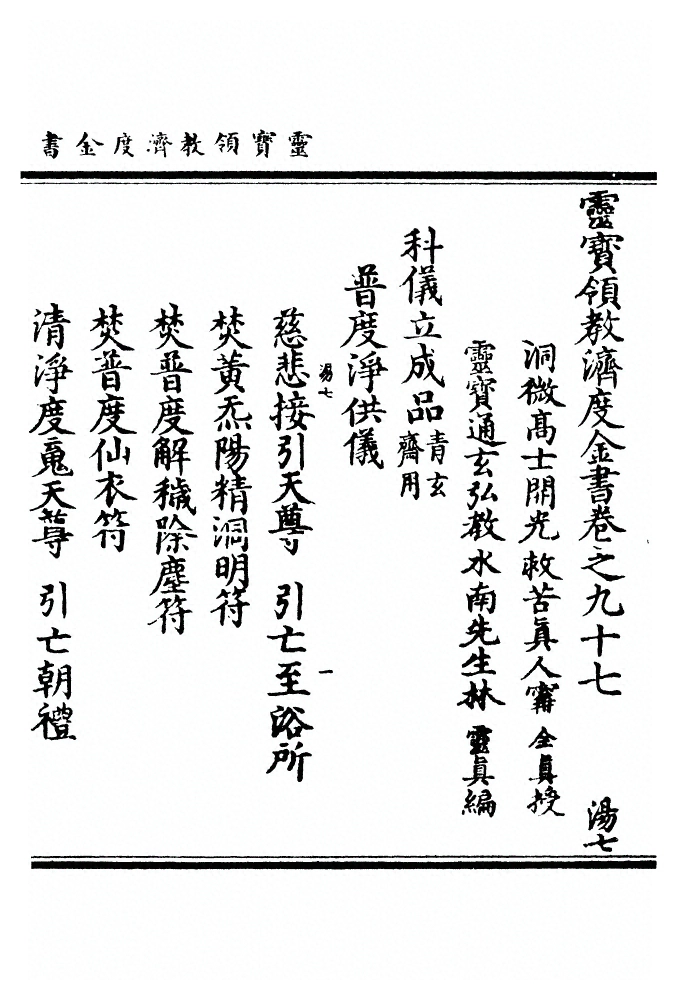 靈寶領教濟度金書
靈寶領教濟度金書卷之九十七　湯七
洞微高士開光救苦眞人甯全眞授
靈寶通玄弘教水南先生林靈眞編
科儀立成品青玄齋用
普度淨供儀
湯七　一
慈悲接引天尊　引亡至浴所
焚黃炁陽精洞明符
焚普度解穢除塵符
焚普度仙衣符
清淨度䰟天尊　引亡朝禮